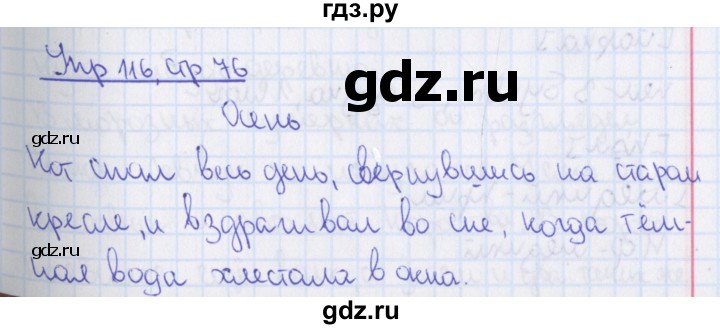 гдз.ру
Упр 116, стр 76
gdz.ru
Осень
gdz.ru
gdz.ru
Кот спал весь день, свернувшись на старом
кресле, и вздрагивал во сне, когда тём-
gdz.ru
gdz.ru
ная вода хлестала в окна.
gdz.ru